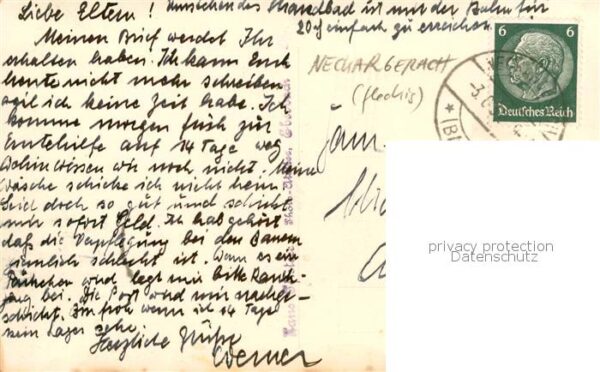 Liebe Eltern! Umstehendes Strandbad ist mit der Bahn für
20 ₰ einfach zu erreichen.
Meinen Brief werdet Ihr
erhalten haben. Ich kann Euch
heute nicht mehr schreiben
weil ich keine Zeit habe. Ich
komme morgen früh zur
Erntehilfe auf 14 Tage weg
Wohin wissen wir noch nicht. Meine
Wäsche schicke ich nicht heim.
Seid doch so gut und schickt
mir sofort Geld. Ich hab gehört
daß die Verpflegung bei den Bauern
ziemlich schlecht ist. Wenn es ein
Päckchen wird legt mir bitte Rauch-
zeug bei. Die Post wird mir nachge-
schickt. Bin froh wenn ich 14 Tage
kein Lager sehe.
Herzliche Grüße
Werner
NECKARGERACH
Fam.
6 6
Deutsches Reich
privacy protection
Datenschutz